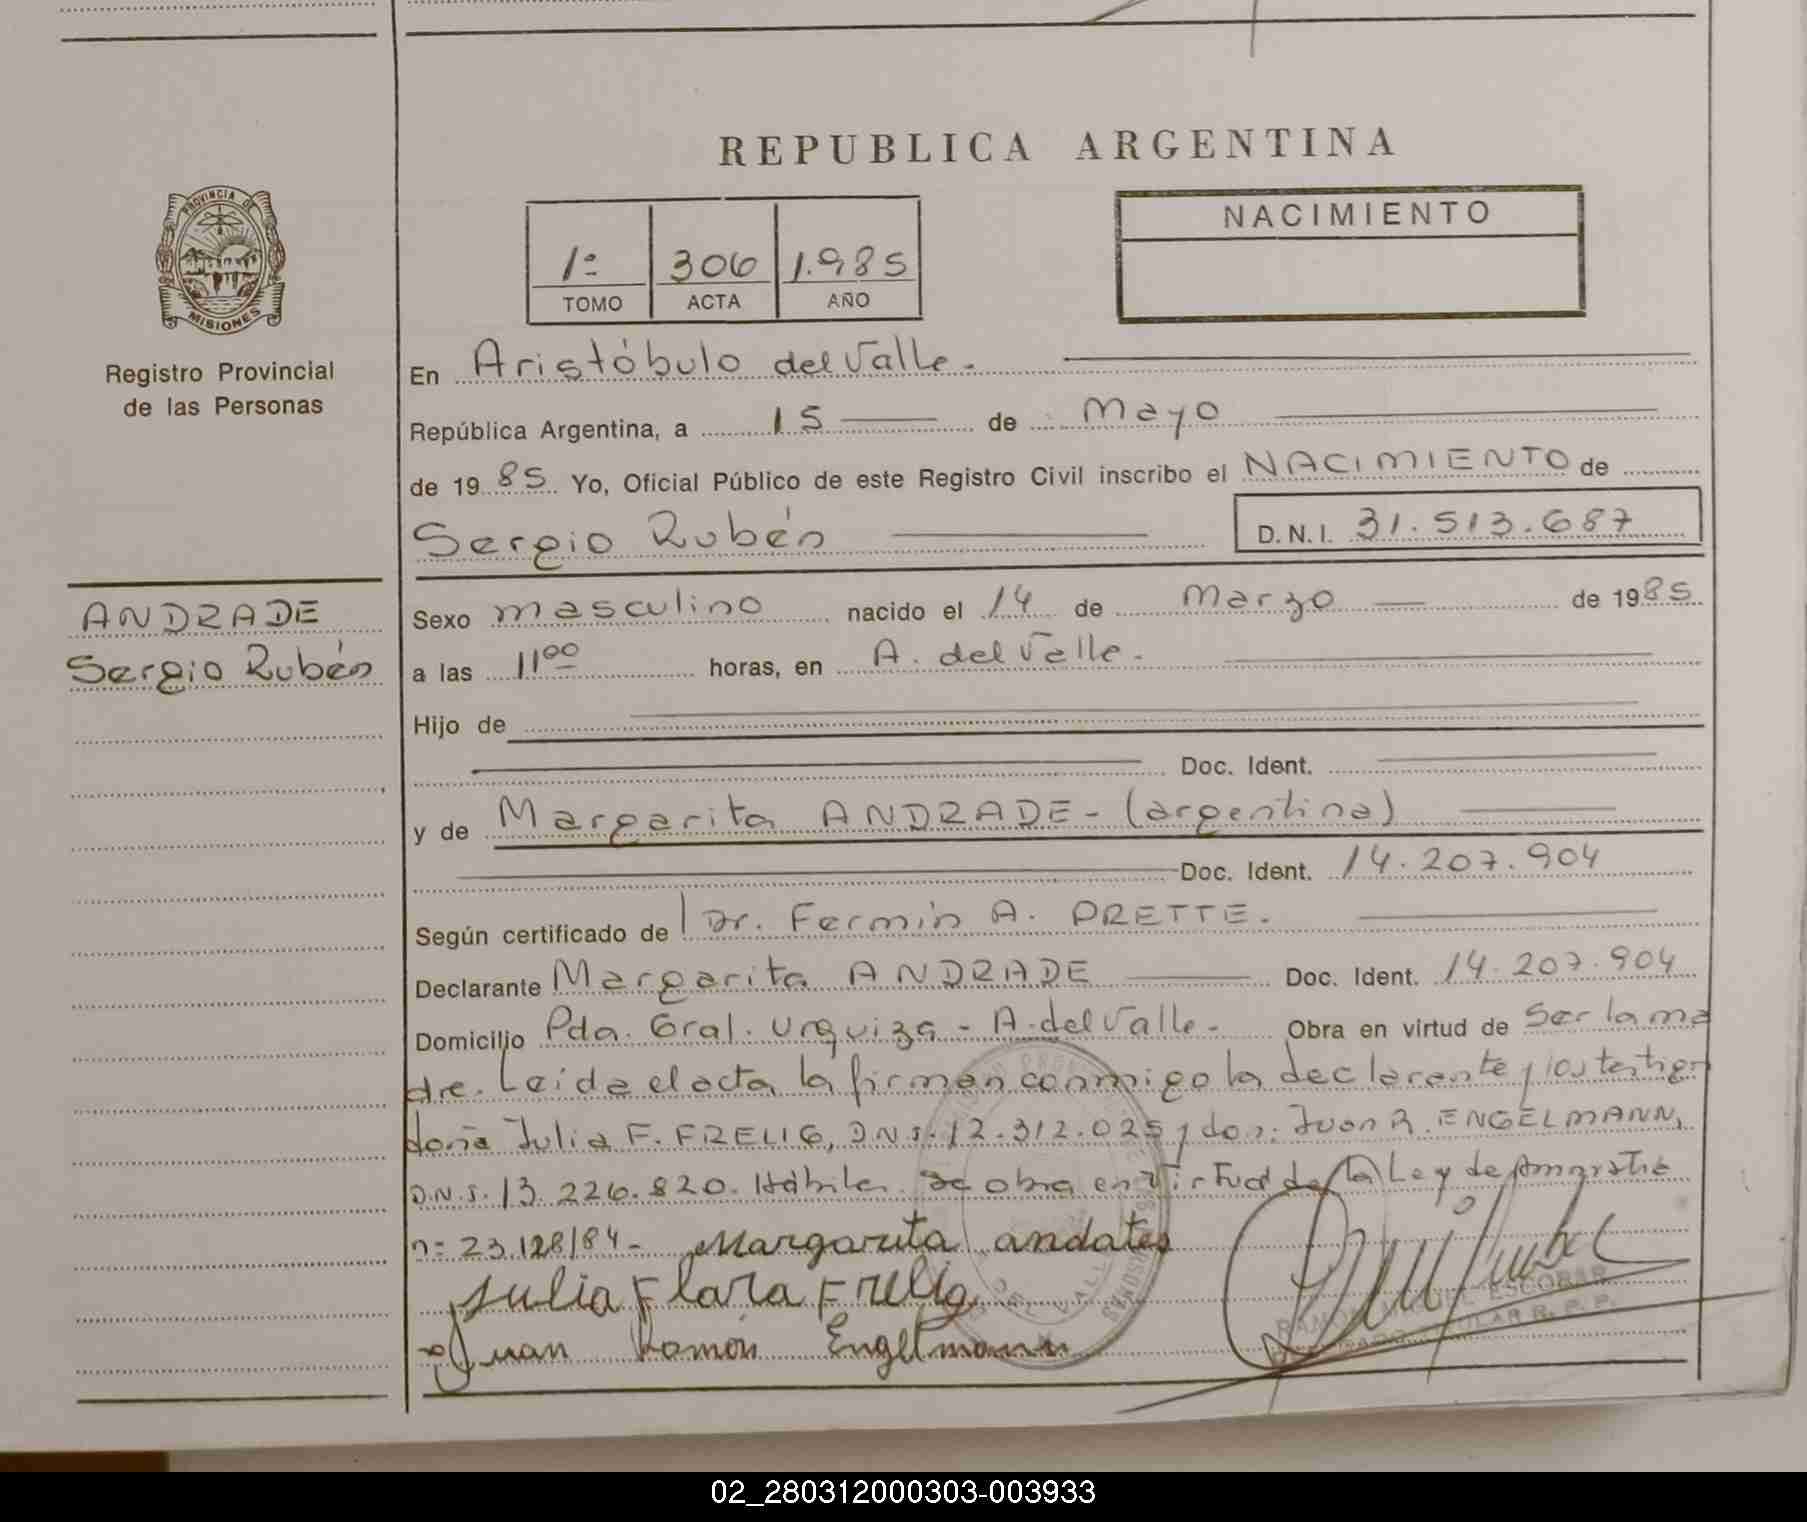 REPUBLICA ARGENTINA
PROVINCIA DE
MISIONES
Registro Provincial
de las Personas
1º 306 1.985
TOMO ACTA AÑO
NACIMIENTO
En Aristóbulo del Valle.
República Argentina, a 15 de Mayo
de 19 85 Yo, Oficial Público de este Registro Civil inscribo el NACIMIENTO de
Sergio Rubén D.N.I. 31.513.687
ANDRADE
Sergio Rubén
Sexo masculino nacido el 14 de Marzo de 1985
a las 11 00 horas, en A. del Valle.
Hijo de
Doc. Ident.
y de Margarita ANDRADE - (argentina)
Doc. Ident. 14.207.904
Según certificado de Dr. Fermín A. PRETTE.
Declarante Margarita ANDRADE Doc. Ident. 14.207.904
Domicilio Pda. Gral. Urquiza - A. del Valle - Obra en virtud de Ser la ma
dre. Leída el acta, la firman conmigo la declarante y los testigos
doña Julia F. FRELIG, D.N.I. 12.312.025 y don: Juan R. ENGELMANN,
D.N.I. 13.226.820. Hábiles Se obra en virtud de la Ley de Amnistía
nº 23.128/84 - Margarita andate
Julia Flara Frelig
Juan Ramón Engelmann
RAMON MIGUEL ESCOBAR
TITULAR R. P. P.
DEL VALLE
02_280312000303-003933